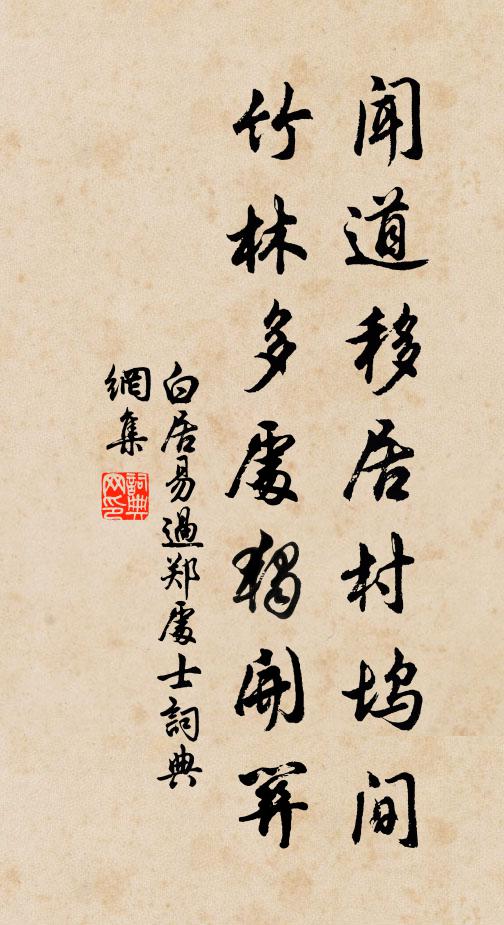 闻道移居村坞间
竹林多處獨開關
白居易過郑處士詞典
網集
詞典
网印